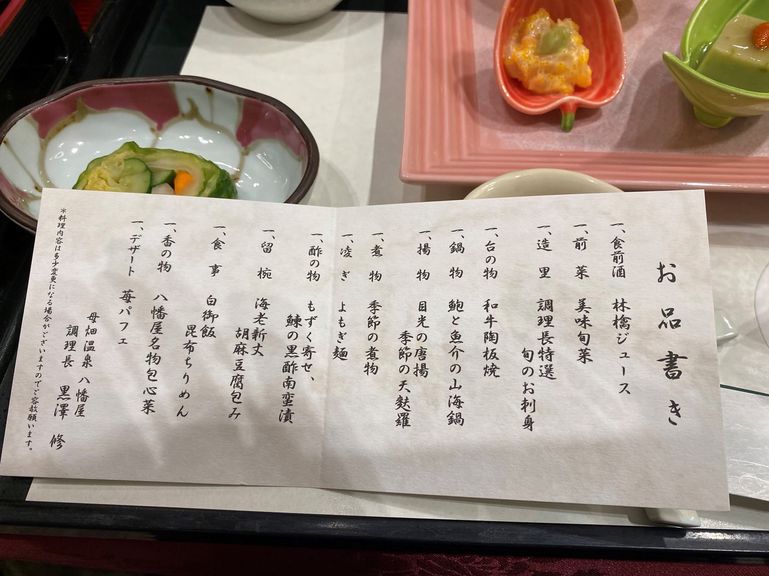 お品書き
一、食前酒 林檎ジュース
一、前菜 美味旬菜
一、造里 調理長特選
旬のお刺身
一、台の物 和牛陶板焼
一、鍋物 鮑と魚介の山海鍋
一、揚物 目光の唐揚
季節の天麩羅
一、煮物 季節の煮物
一、凌ぎ よもぎ麺
一、酢の物 もずく寄せ、
鰊の黒酢南蛮漬
一、留椀 海老新丈
胡麻豆腐包み
一、食事 白御飯
昆布ちりめん
一、香の物 八幡屋名物包心菜
一、デザート 苺パフェ
母畑温泉 八幡屋
調理長 黒澤 修
*料理内容は多少変更になる場合がございますのでご容赦願います。